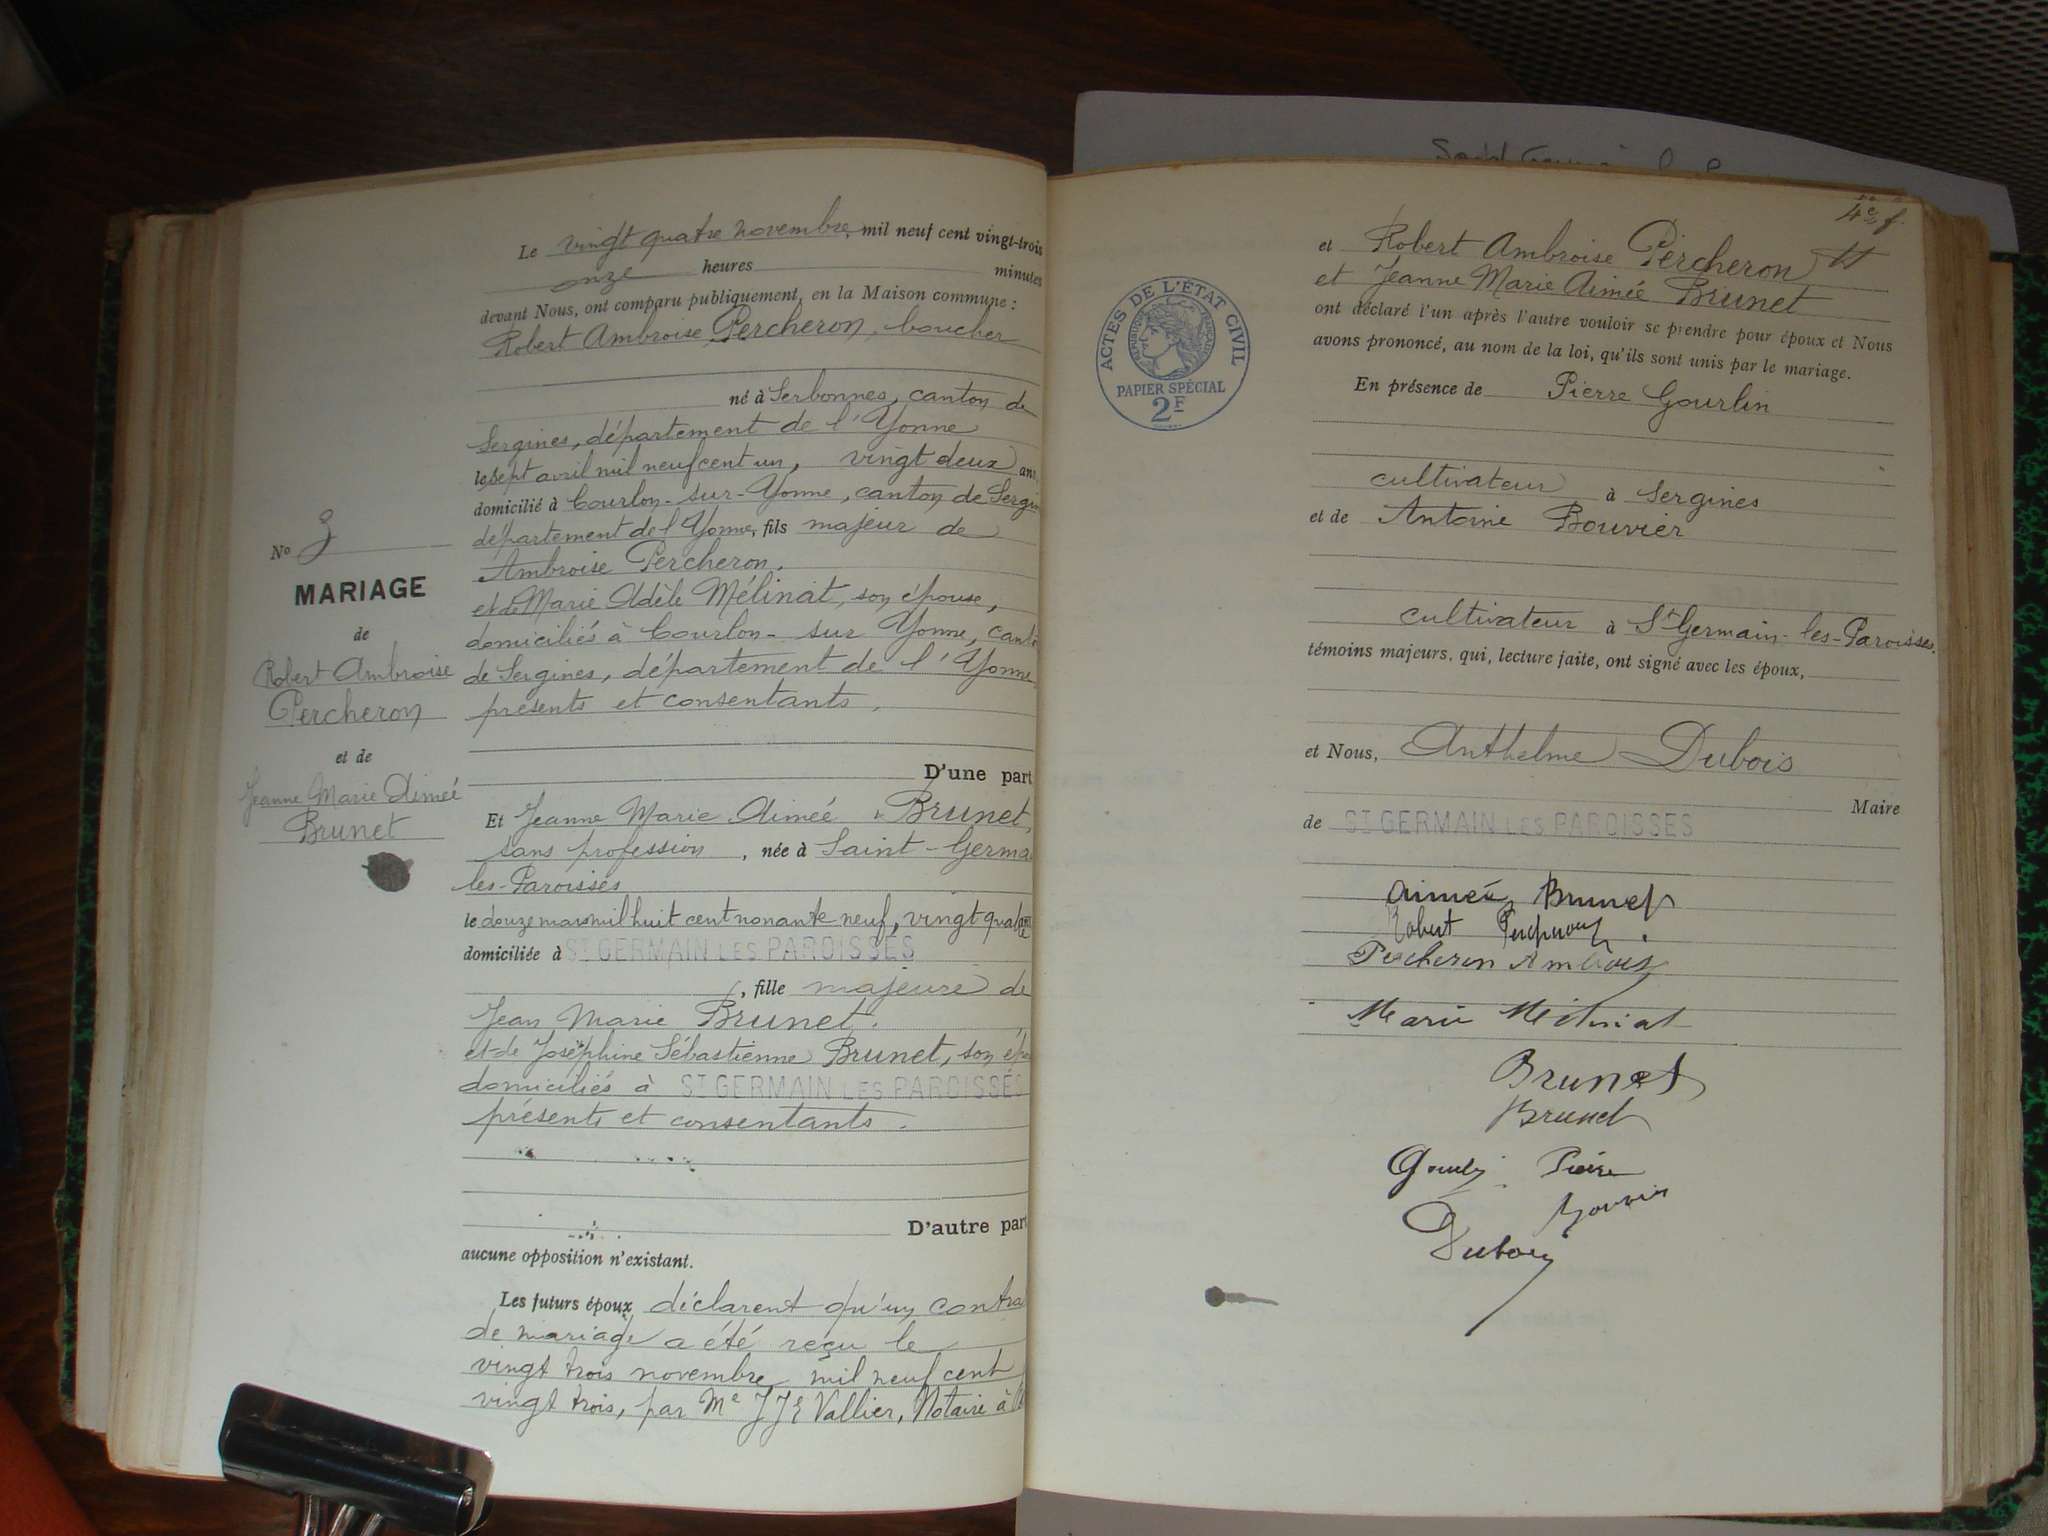 Le vingt quatre novembre, mil neuf cent vingt-trois
onze heures minutes
devant Nous, ont comparu publiquement, en la Maison commune :
Robert Ambroise Percheron, boucher
né à Serbonnes, canton de
Sergines, département de l'Yonne
le sept avril mil neuf cent un, vingt deux ans,
domicilié à Courlon-sur-Yonne, canton de Sergin
département de l'Yonne, fils majeur de
Ambroise Percheron,
et de Marie Adèle Mélinat, son épouse,
domiciliés à Courlon-sur Yonne, canto
de Sergines, département de l'Yonne,
présents et consentants,
D'une part
Et Jeanne Marie Aimée Brunet,
sans profession, née à Saint-Germa
les-Paroisses
le douze mars mil huit cent nonante neuf, vingt quatre ans
domiciliée à ST GERMAIN LES PAROISSES
, fille majeure de
Jean Marie Brunet.
et de Joséphine Sébastienne Brunet, son épo
domiciliés à ST GERMAIN LES PAROISSES
présents et consentants.
D'autre part
aucune opposition n'existant.
Les futurs époux déclarent qu'un contra
de mariage a été reçu le
vingt trois novembre mil neuf cent
vingt trois, par Me J J E Vallier, Notaire à
No 3
MARIAGE
de
Robert Ambroise
Percheron
et de
Jeanne Marie Aimée
Brunet
4e f.
et Robert Ambroise Percheron
et Jeanne Marie Aimée Brunet
ont déclaré l'un après l'autre vouloir se prendre pour époux et Nous
avons prononcé, au nom de la loi, qu'ils sont unis par le mariage.
En présence de Pierre Gourlin
cultivateur à Sergines
et de Antoine Bouvier
cultivateur à St Germain-les-Paroisses.
témoins majeurs, qui, lecture faite, ont signé avec les époux,
et Nous, Anthelme Dubois
Maire
de ST GERMAIN LES PAROISSES
Aimée Brunet
Robert Percheron
Percheron Ambroise
Marie Mélinat
Brunet
Brunet
Gourlin Pierre
Bouvier
Dubois
ACTES DE L'ÉTAT CIVIL
RÉPUBLIQUE FRANÇAISE
PAPIER SPÉCIAL
2F